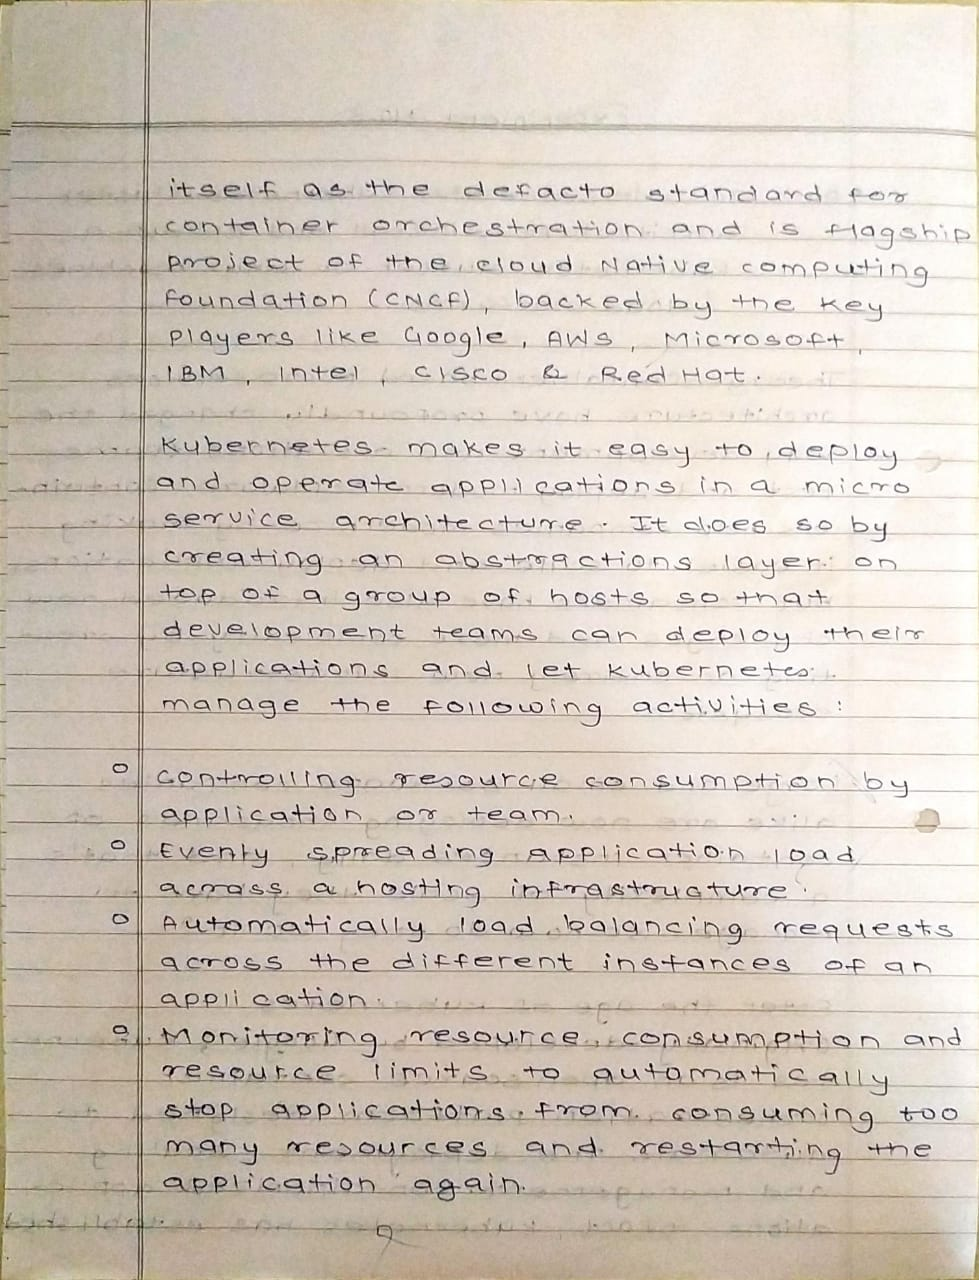 itself as the defacto standard for
container orchestration and is flagship
project of the cloud Native computing
foundation (CNCF), backed by the key
players like Google, AWS, Microsoft,
IBM, Intel, cisco & Red Hat.
Kubernetes makes it easy to deploy
and operate applications in a micro
service architecture. It does so by
creating an abstractions layer on
top of a group of hosts so that
development teams can deploy their
applications and let kubernetes
manage the following activities :
o controlling resource consumption by
application or team.
o Evenly spreading application load
across a hosting infrastructure.
o Automatically load balancing requests
across the different instances of an
application.
o Monitoring resource consumption and
resource limits to automatically
stop applications from consuming too
many resources and restarting the
application again.